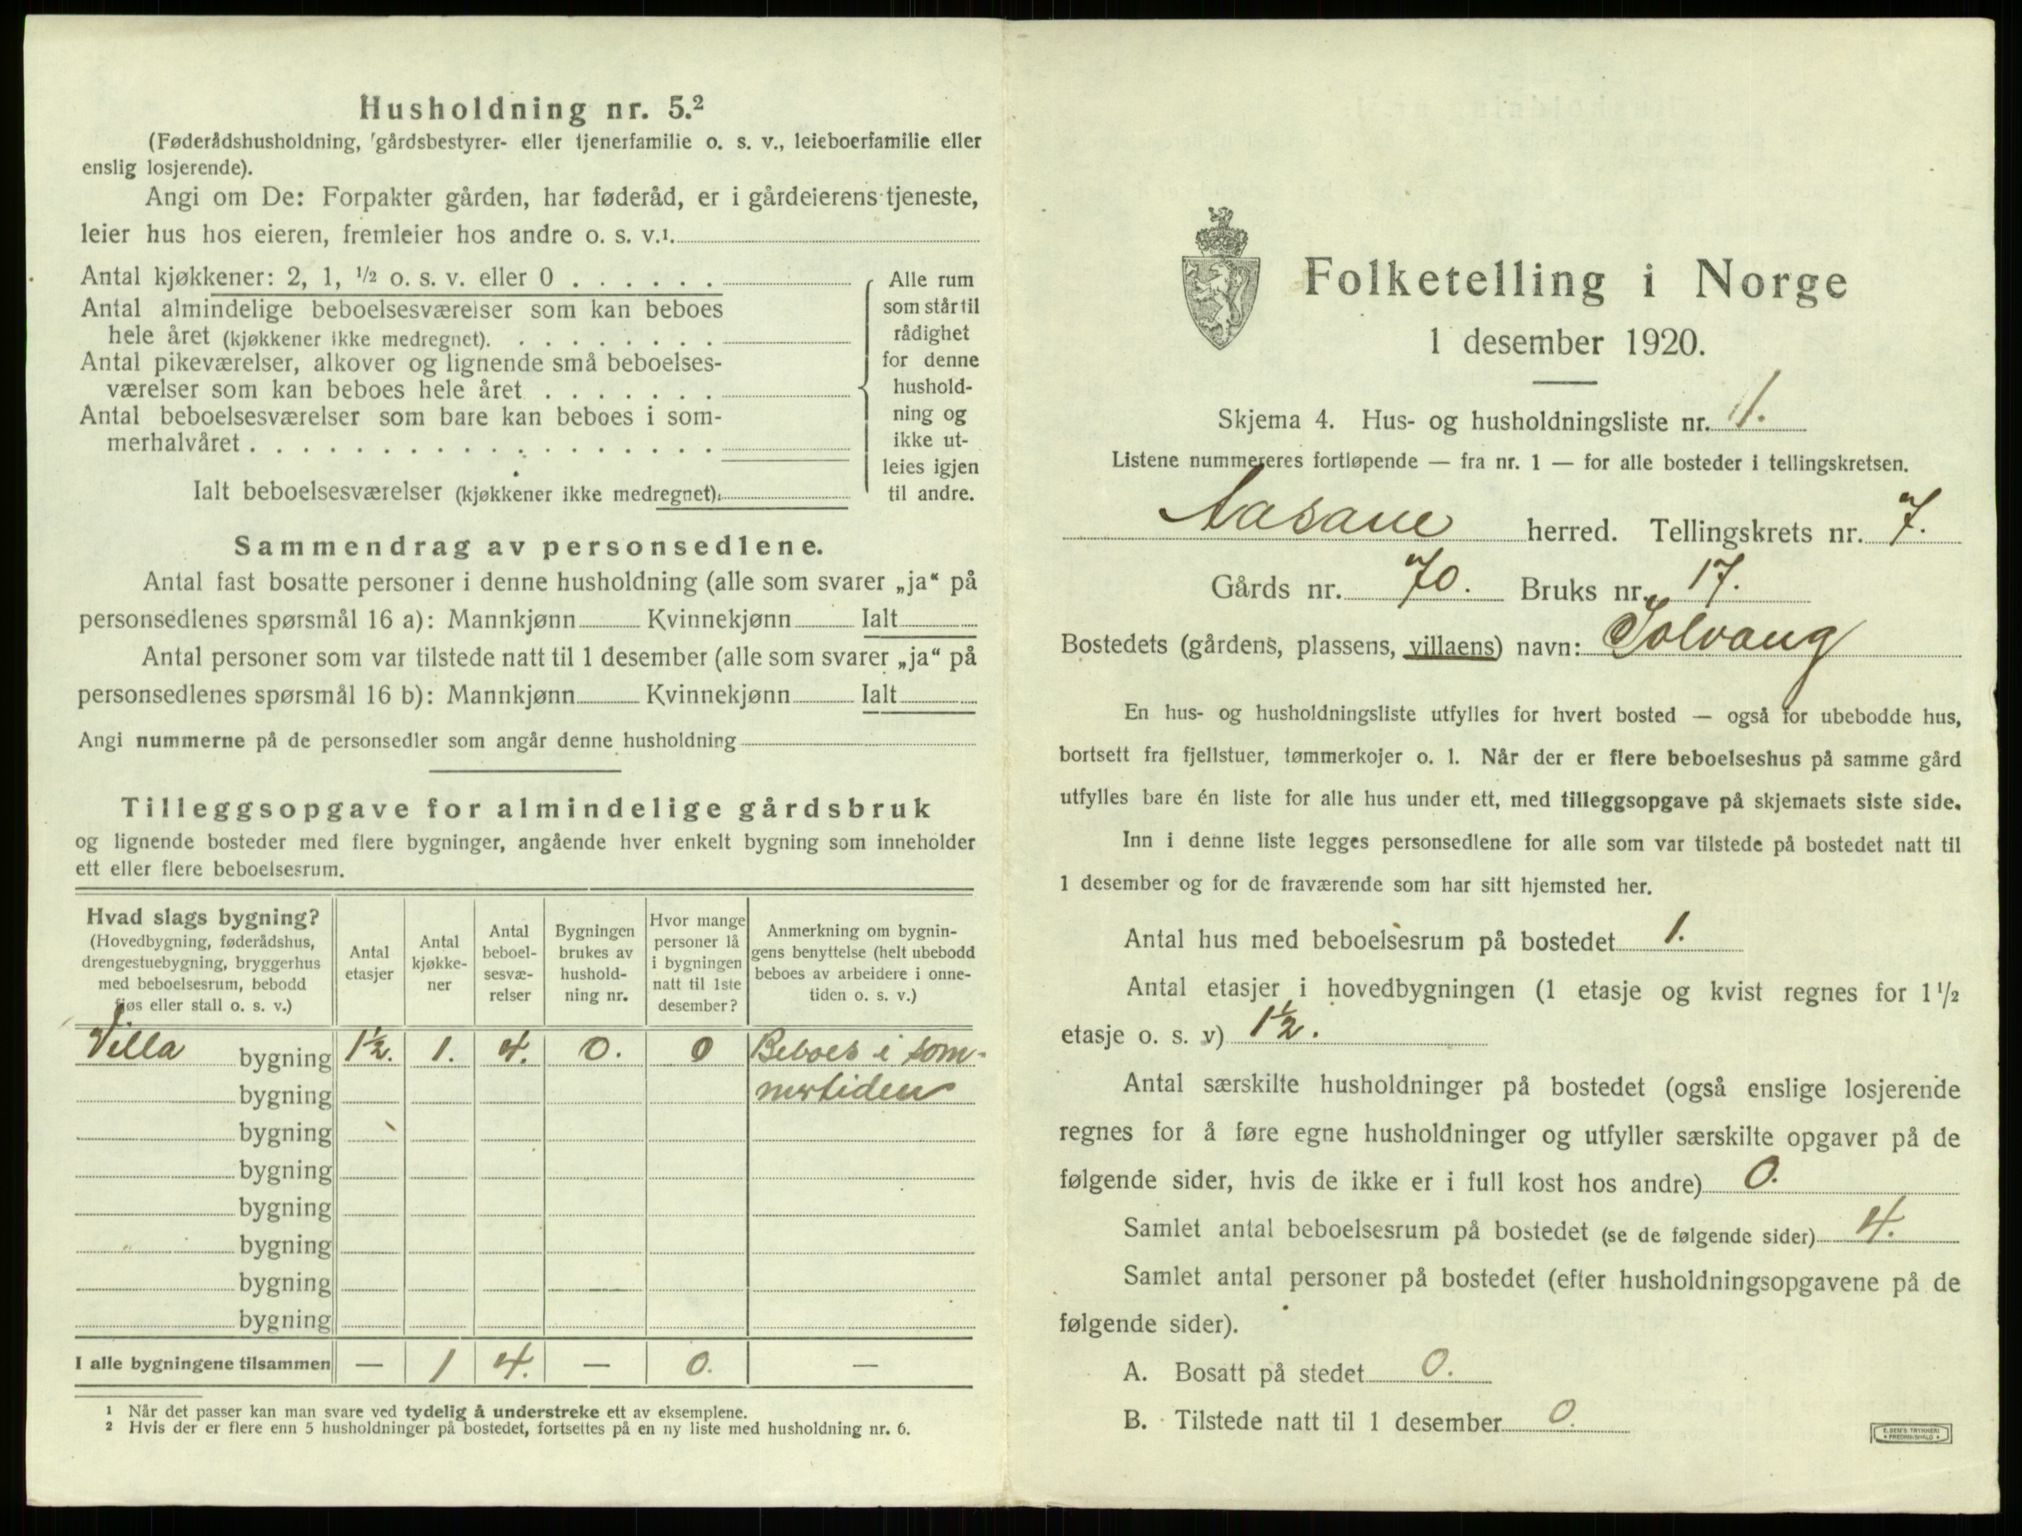 Husholdning nr. 5.²
(Føderådshusholdning, gårdsbestyrer- eller tjenerfamilie o. s. v., leieboerfamilie eller
enslig losjerende).
Angi om De: Forpakter gården, har føderåd, er i gårdeierens tjeneste,
leier hus hos eieren, fremleier hos andre o. s. v.¹
Antal kjøkkener: 2, 1, ½ o. s. v. eller 0 . . . . . .
Antal almindelige beboelsesværelser som kan beboes
hele året (kjøkkener ikke medregnet). . . . . . . . .
Antal pikeværelser, alkover og lignende små beboelses-
værelser som kan beboes hele året . . . . . . .
Antal beboelsesværelser som bare kan beboes i som-
merhalvåret . . . . . . . . . . . . . . . . . .
Ialt beboelsesværelser (kjøkkener ikke medregnet):
Alle rum
som står til
rådighet
for denne
hushold-
ning og
ikke ut-
leies igjen
til andre.
Sammendrag av personsedlene.
Antal fast bosatte personer i denne husholdning (alle som svarer „ja“ på
personsedlenes spørsmål 16 a): Mannkjønn Kvinnekjønn Ialt
Antal personer som var tilstede natt til 1 desember (alle som svarer „ja“ på
personsedlenes spørsmål 16 b): Mannkjønn Kvinnekjønn Ialt
Angi nummerne på de personsedler som angår denne husholdning
Tilleggsopgave for almindelige gårdsbruk
og lignende bosteder med flere bygninger, angående hver enkelt bygning som inneholder
ett eller flere beboelsesrum.
Hvad slags bygning?
(Hovedbygning, føderådshus,
drengestuebygning, bryggerhus
med beboelsesrum, bebodd
fjøs eller stall o. s. v.)
Antal
etasjer
Antal
kjøkke-
ner
Antal
beboel-
sesvæ-
relser
Bygningen
brukes av
hushold-
ning nr.
Hvor mange
personer lå
i bygningen
natt til 1ste
desember?
Anmerkning om bygnin-
gens benyttelse (helt ubebodd
beboes av arbeidere i onne-
tiden o. s. v.)
Villa bygning 1½. 1. 4. 0. 0 Beboes i som-
bygning mertiden
bygning
bygning
bygning
bygning
bygning
bygning
I alle bygningene tilsammen — 1 4. — 0. —
1 Når det passer kan man svare ved tydelig å understreke ett av eksemplene.
2 Hvis der er flere enn 5 husholdninger på bostedet, fortsettes på en ny liste med husholdning nr. 6.
Folketelling i Norge
1 desember 1920.
Skjema 4. Hus- og husholdningsliste nr. 11.
Listene nummereres fortløpende — fra nr. 1 — for alle bosteder i tellingskretsen.
Aasane herred. Tellingskrets nr. 7.
Gårds nr. 70. Bruks nr. 17.
Bostedets (gårdens, plassens, villaens) navn: Solvang
En hus- og husholdningsliste utfylles for hvert bosted — også for ubebodde hus,
bortsett fra fjellstuer, tømmerkojer o. l. Når der er flere beboelseshus på samme gård
utfylles bare én liste for alle hus under ett, med tilleggsopgave på skjemaets siste side.
Inn i denne liste legges personsedlene for alle som var tilstede på bostedet natt til
1 desember og for de fraværende som har sitt hjemsted her.
Antal hus med beboelsesrum på bostedet 1.
Antal etasjer i hovedbygningen (1 etasje og kvist regnes for 1½
etasje o. s. v) 1½.
Antal særskilte husholdninger på bostedet (også enslige losjerende
regnes for å føre egne husholdninger og utfyller særskilte opgaver på de
følgende sider, hvis de ikke er i full kost hos andre) 0.
Samlet antal beboelsesrum på bostedet (se de følgende sider) 4.
Samlet antal personer på bostedet (efter husholdningsopgavene på de
følgende sider).
A. Bosatt på stedet 0.
B. Tilstede natt til 1 desember 0.
E. SEM'S TRYKKERI
FREDRIKSHALD